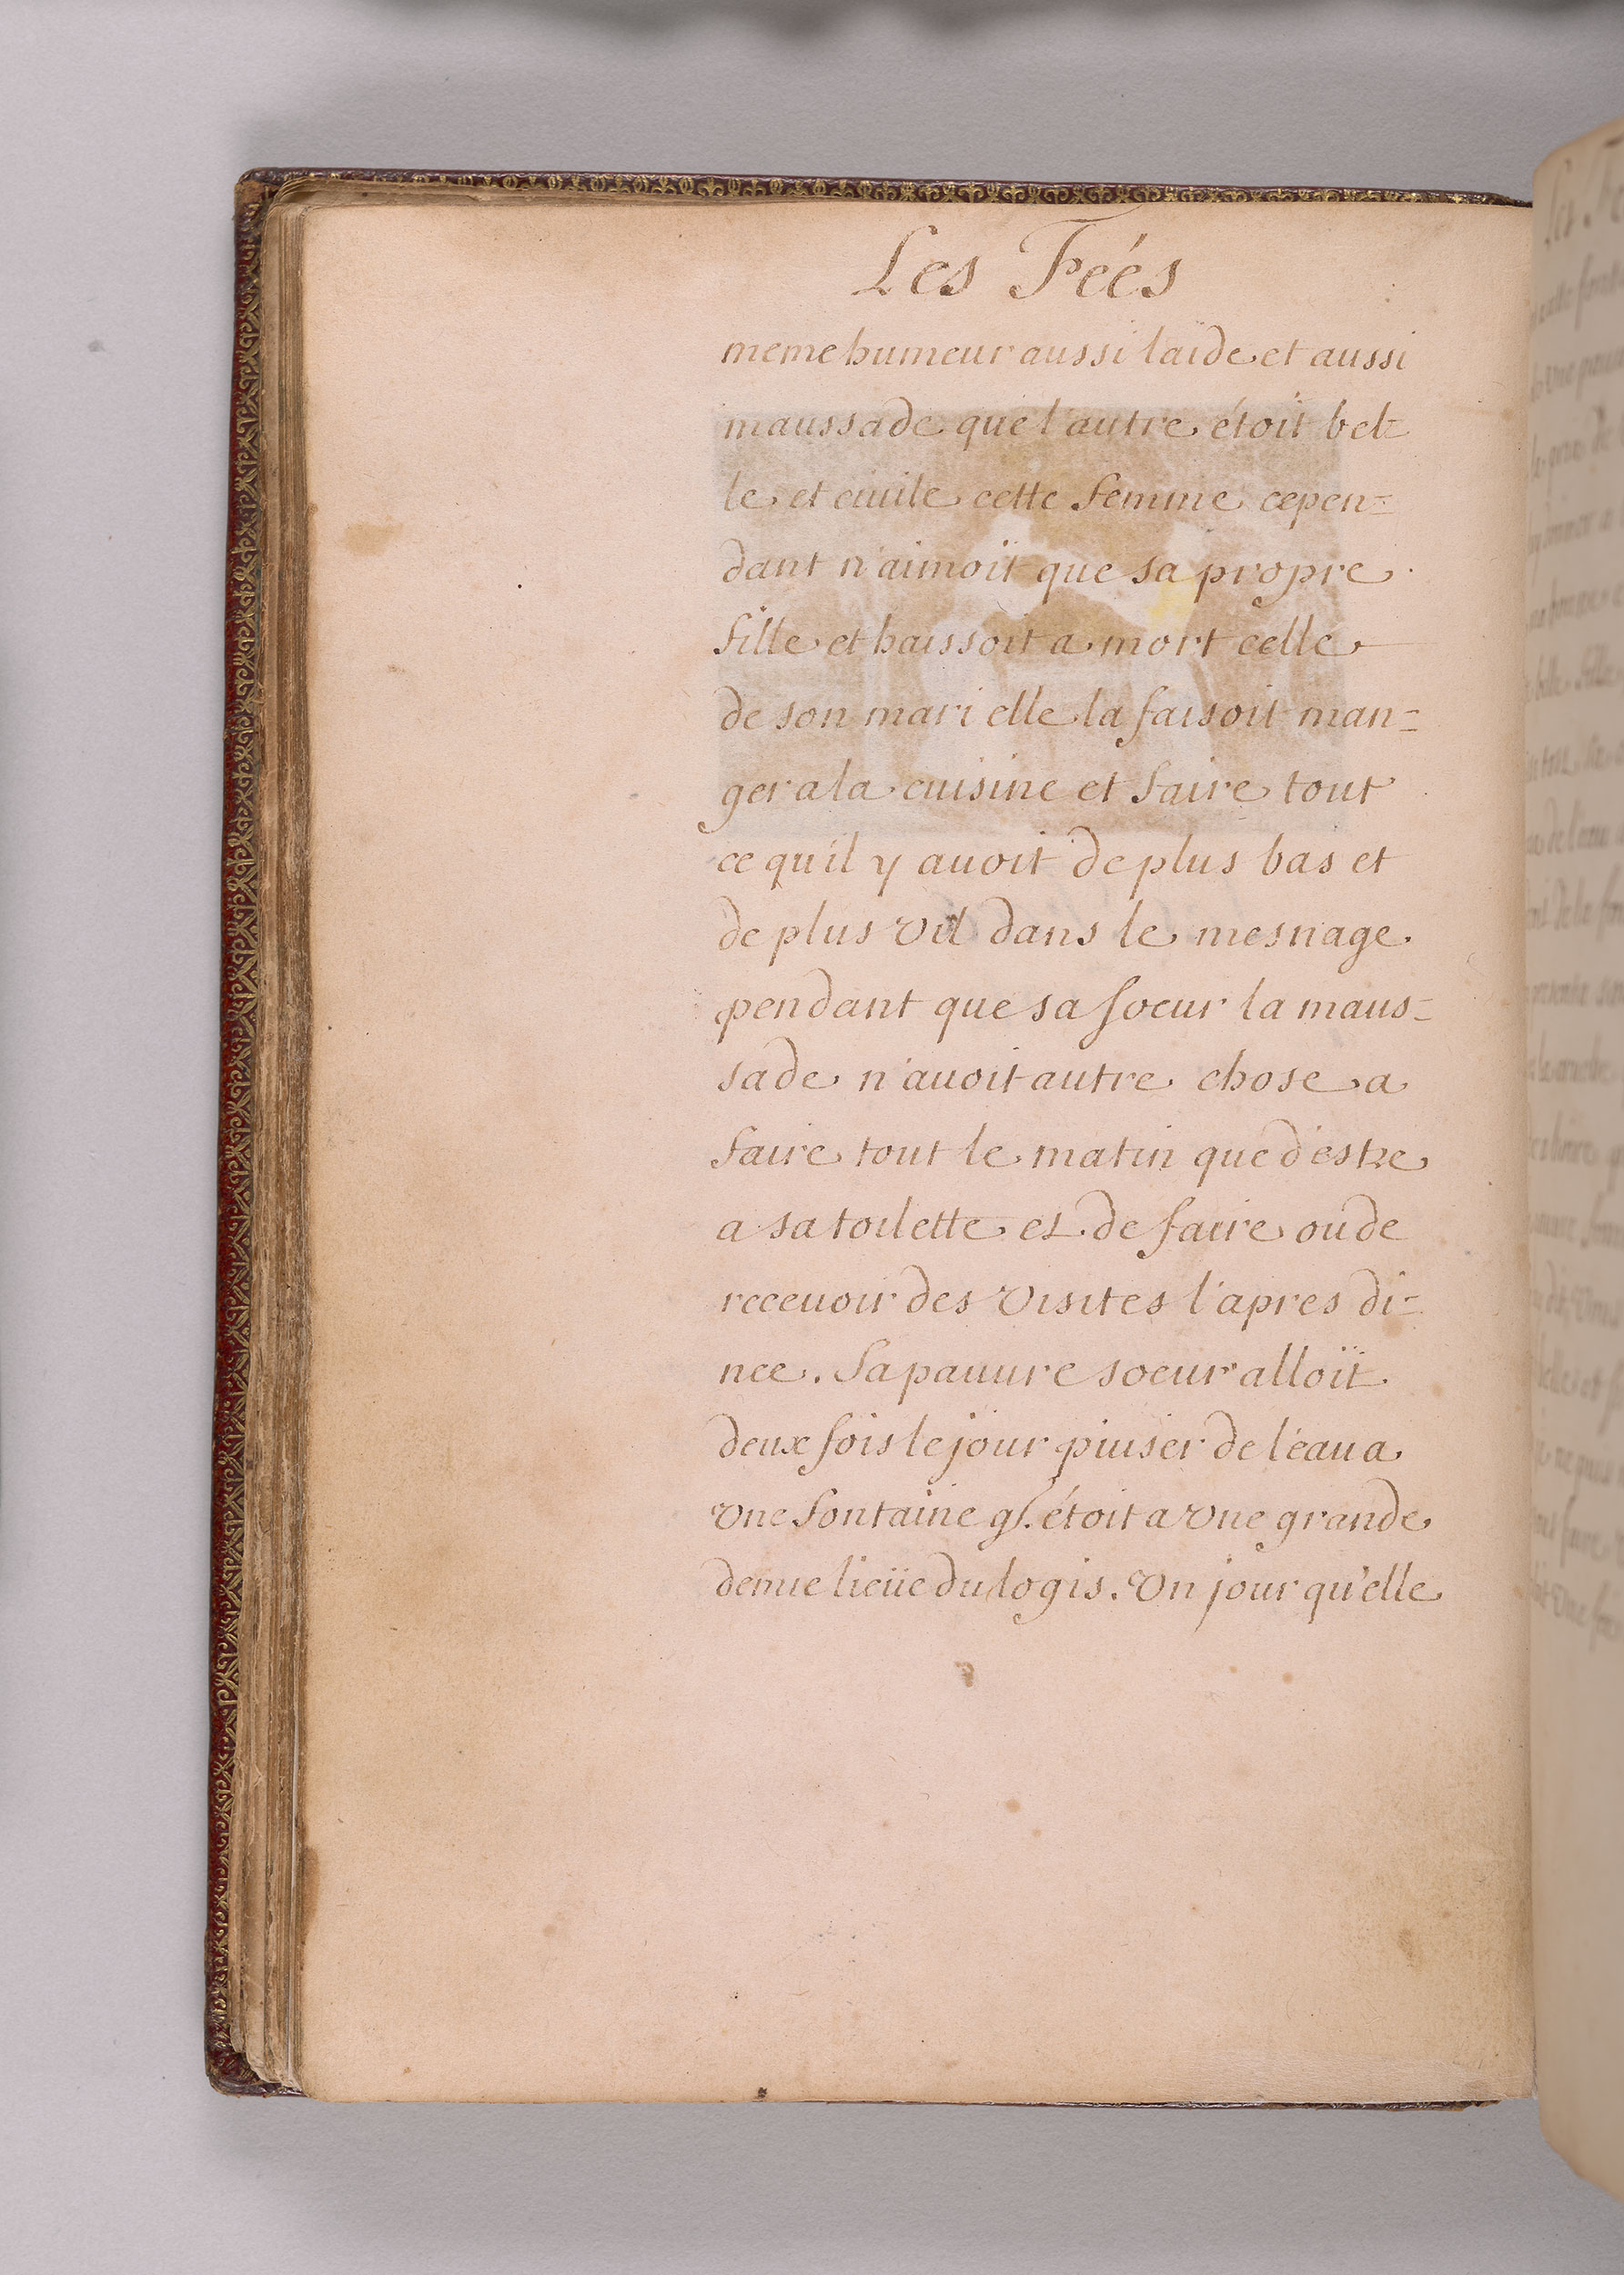 Les Feés
meme humeur aussi laide et aussi
maussade que l'autre étoit bel=
le et ciuile cette femme cepen=
dant n'aimoit que sa propre
fille et haissoit a mort celle
de son mari elle la faisoit man=
ger a la cuisine et faire tout
ce qu'il y auoit de plus bas et
de plus vil dans le mesnage
pendant que sa soeur la maus=
sade n'auoit autre chose a
faire tout le matin que d'estre
a sa toilette et de faire ou de
receuoir des visites l'apres di=
nee. Sa pauure soeur alloit
deux fois le jour puiser de l'eau a
vne fontaine q. étoit a vne grande
demie lieüe du logis. Vn jour qu'elle